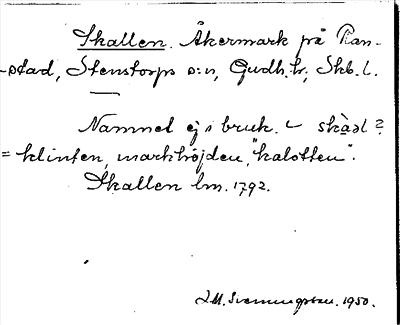 Skallen. Åkermark på Ran-
-stad, Stenstorps s:n, Gudh. hr, Skb. l.
Namnet ej i bruk. skàəl ?
= klinten, markhöjden, "kalotten".
Skallen lm. 1792.
J.M. Svenningsson. 1950.